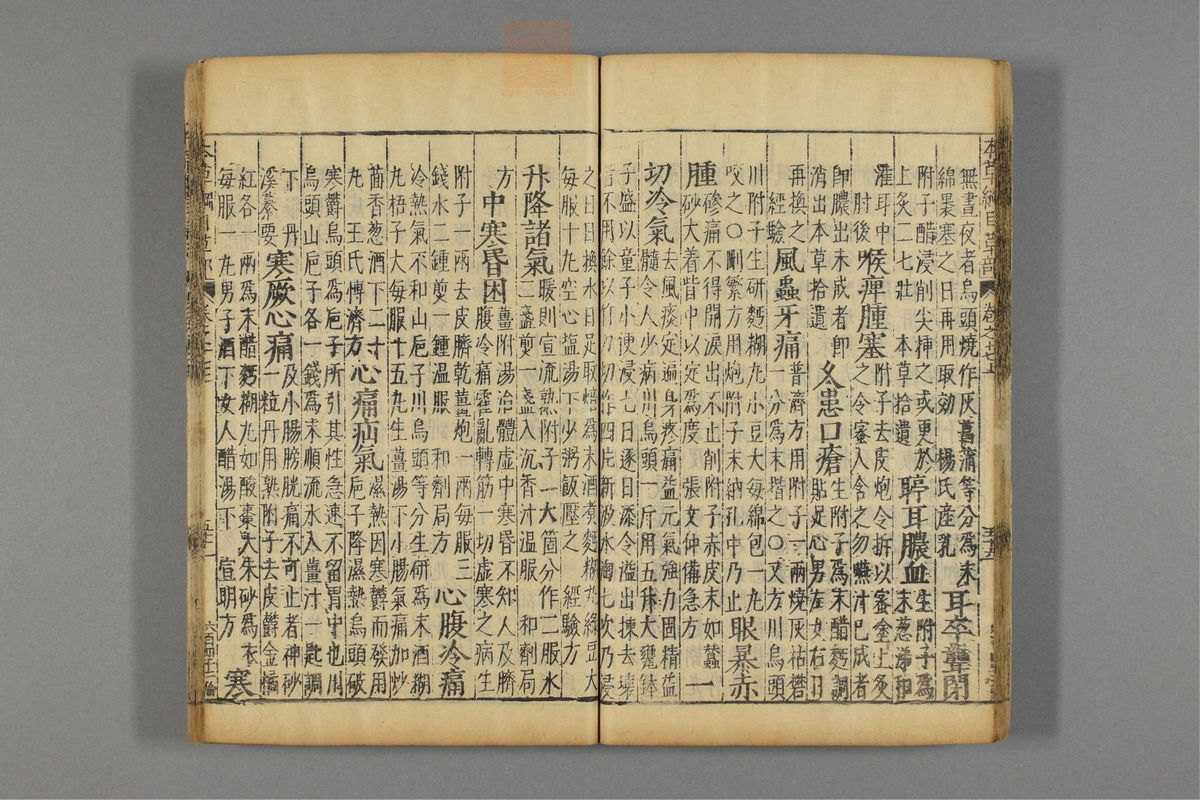 無晝夜者烏頭燒作灰菖蒲等分爲末
綿裹塞之日再用取効　楊氏産乳　耳卒聾閉
附子醋浸削尖揷之或更於上灸二七壯　本草拾遺　聤耳膿血　生附子爲末葱涕和
灌耳中　肘後　喉痺腫塞　附子去皮炮令拆以蜜塗上灸
之令蜜入含之勿嚥汁已成者
即膿出未成者即
消出本草拾遺　久患口瘡　生附子爲末醋麪調
貼足心男左女右日
再換之
經驗　風蟲牙痛　普濟方用附子一兩燒灰枯礬
一分爲末揩之〇又方川烏頭
川附子生研麪糊丸小豆大每綿包一丸
咬之〇刪繁方用炮附子末納孔中乃止　眼暴赤
腫　磣痛不得開淚出不止削附子赤皮末如蠶
砂大着眥中以定爲度　張文仲備急方　一
切冷氣　去風痰定遍身疼痛益元氣強力固精益
髓令人少病川烏頭一斤用五升大甕鉢
子盛以童子小便浸七日逐日添令溢出揀去壞
者不用餘以竹刀切作四片新汲水淘七次乃浸
之日日換水日足取焙爲末酒煮麵糊丸綠豆大
每服十丸空心鹽湯下少粥飯壓之　經驗方
升降諸氣　暖則宣流熟附子一大箇分作二服水
二盞煎一盞入沉香汁溫服　和劑局
方　中寒昏困　薑附湯治體虛中寒昏不知人及臍
腹冷痛霍亂轉筋一切虛寒之病生
附子一兩去皮臍乾薑炮一兩每服三
錢水二鍾煎一鍾溫服　和劑局方　心腹冷痛
冷熱氣不和山巵子川烏頭等分生研爲末酒糊
丸梧子大每服十五丸生薑湯下小腸氣痛加炒
茴香葱酒下二十
丸　王氏愽濟方　心痛疝氣　濕熱因寒鬱而發用
巵子降濕熱烏頭破
寒鬱烏頭爲巵子所引其性急速不留胃中也川
烏頭山巵子各一錢爲末順流水入薑汁一匙調
下　丹
溪纂要　寒厥心痛　及小腸膀胱痛不可止者神砂
一粒丹用熟附子去皮鬱金橘
紅各一兩爲末醋麪糊丸如酸棗大朱砂爲衣
每服一丸男子酒下女人醋湯下　宣明方　寒
本草綱目草部　卷之十七